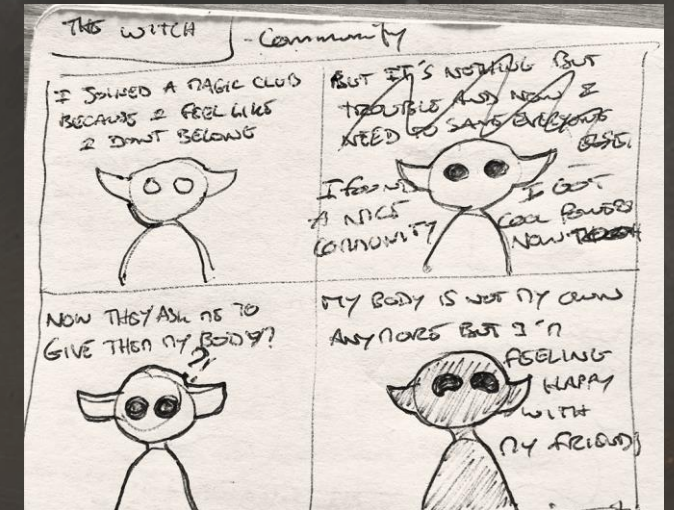 THE WITCH
- Community
I JOINED A MAGIC CLUB
BECAUSE I FEEL LIKE
I DONT BELONG
BUT IT'S NOTHING BUT
TROUBLE AND NOW I
NEED TO SAVE EVERYONE
ELSE.
I FOUND
A NICE
COMMUNITY
I GOT
COOL POWERS
NOW
NOW THEY ASK ME TO
GIVE THEM MY BODY?
?!
MY BODY IS NOT MY OWN
ANYMORE BUT I'M
FEELING
HAPPY
WITH
MY FRIENDS